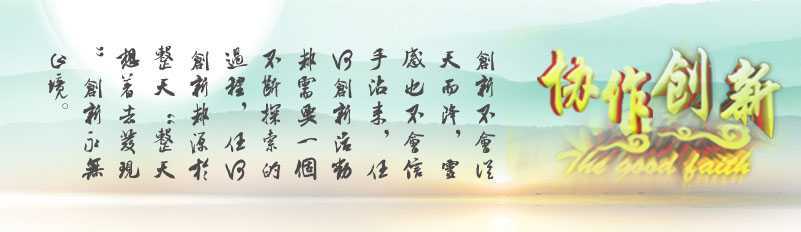 創新不會從
天而降，靈
感也不會信
手沾來，任
何創新活動
都需要一個
不斷探索的
過程，任何
創新都源於
整天：整天
想著去發現
“創新永無
止境。
协作创新
The good faith